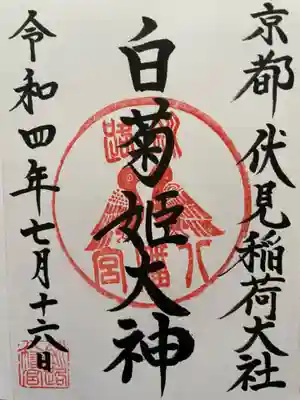 京都 伏見稲荷大社
白菊姫大神
令和四年七月十六日